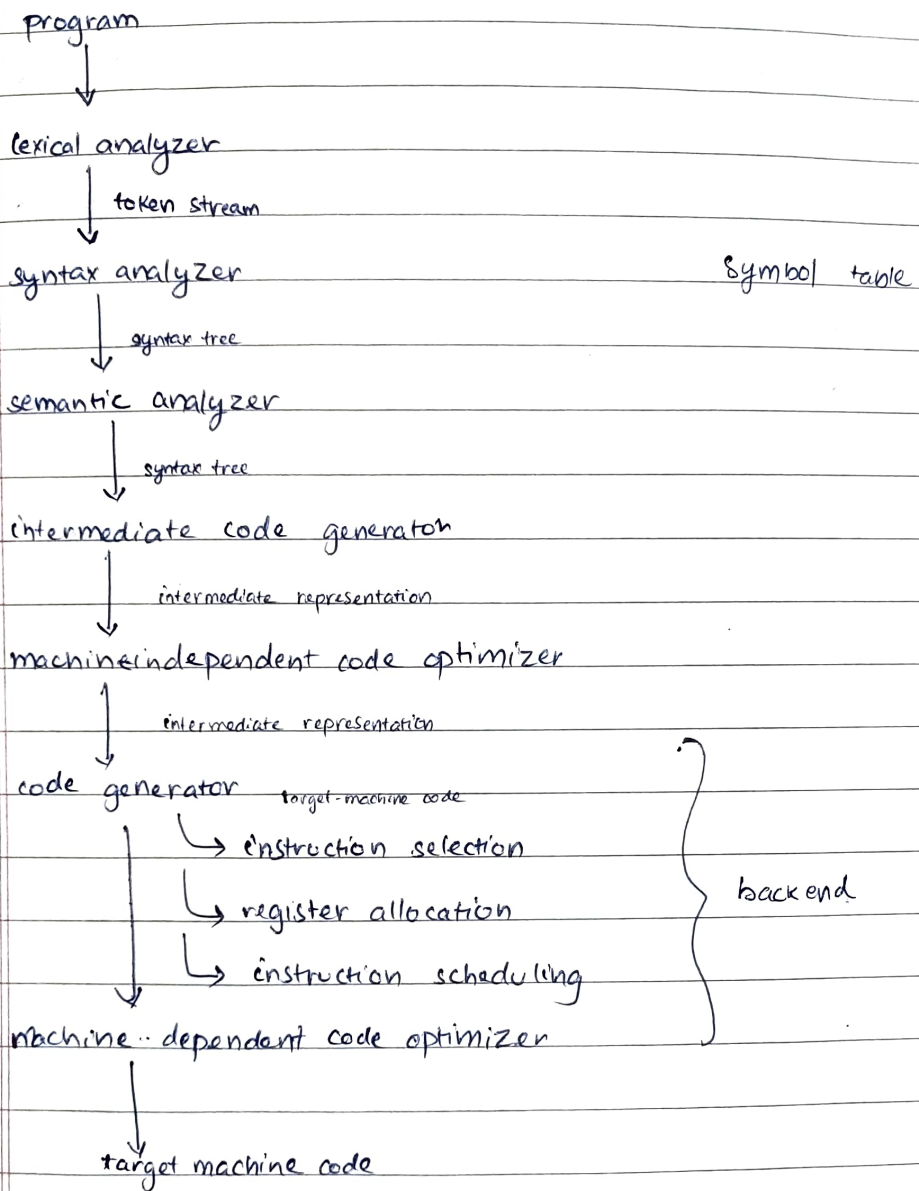 program
lexical analyzer
token stream
syntax analyzer symbol table
syntax tree
semantic analyzer
syntax tree
intermediate code generator
intermediate representation
machine independent code optimizer
intermediate representation
code generator target-machine code
instruction selection
register allocation
backend
instruction scheduling
machine-dependent code optimizer
target machine code